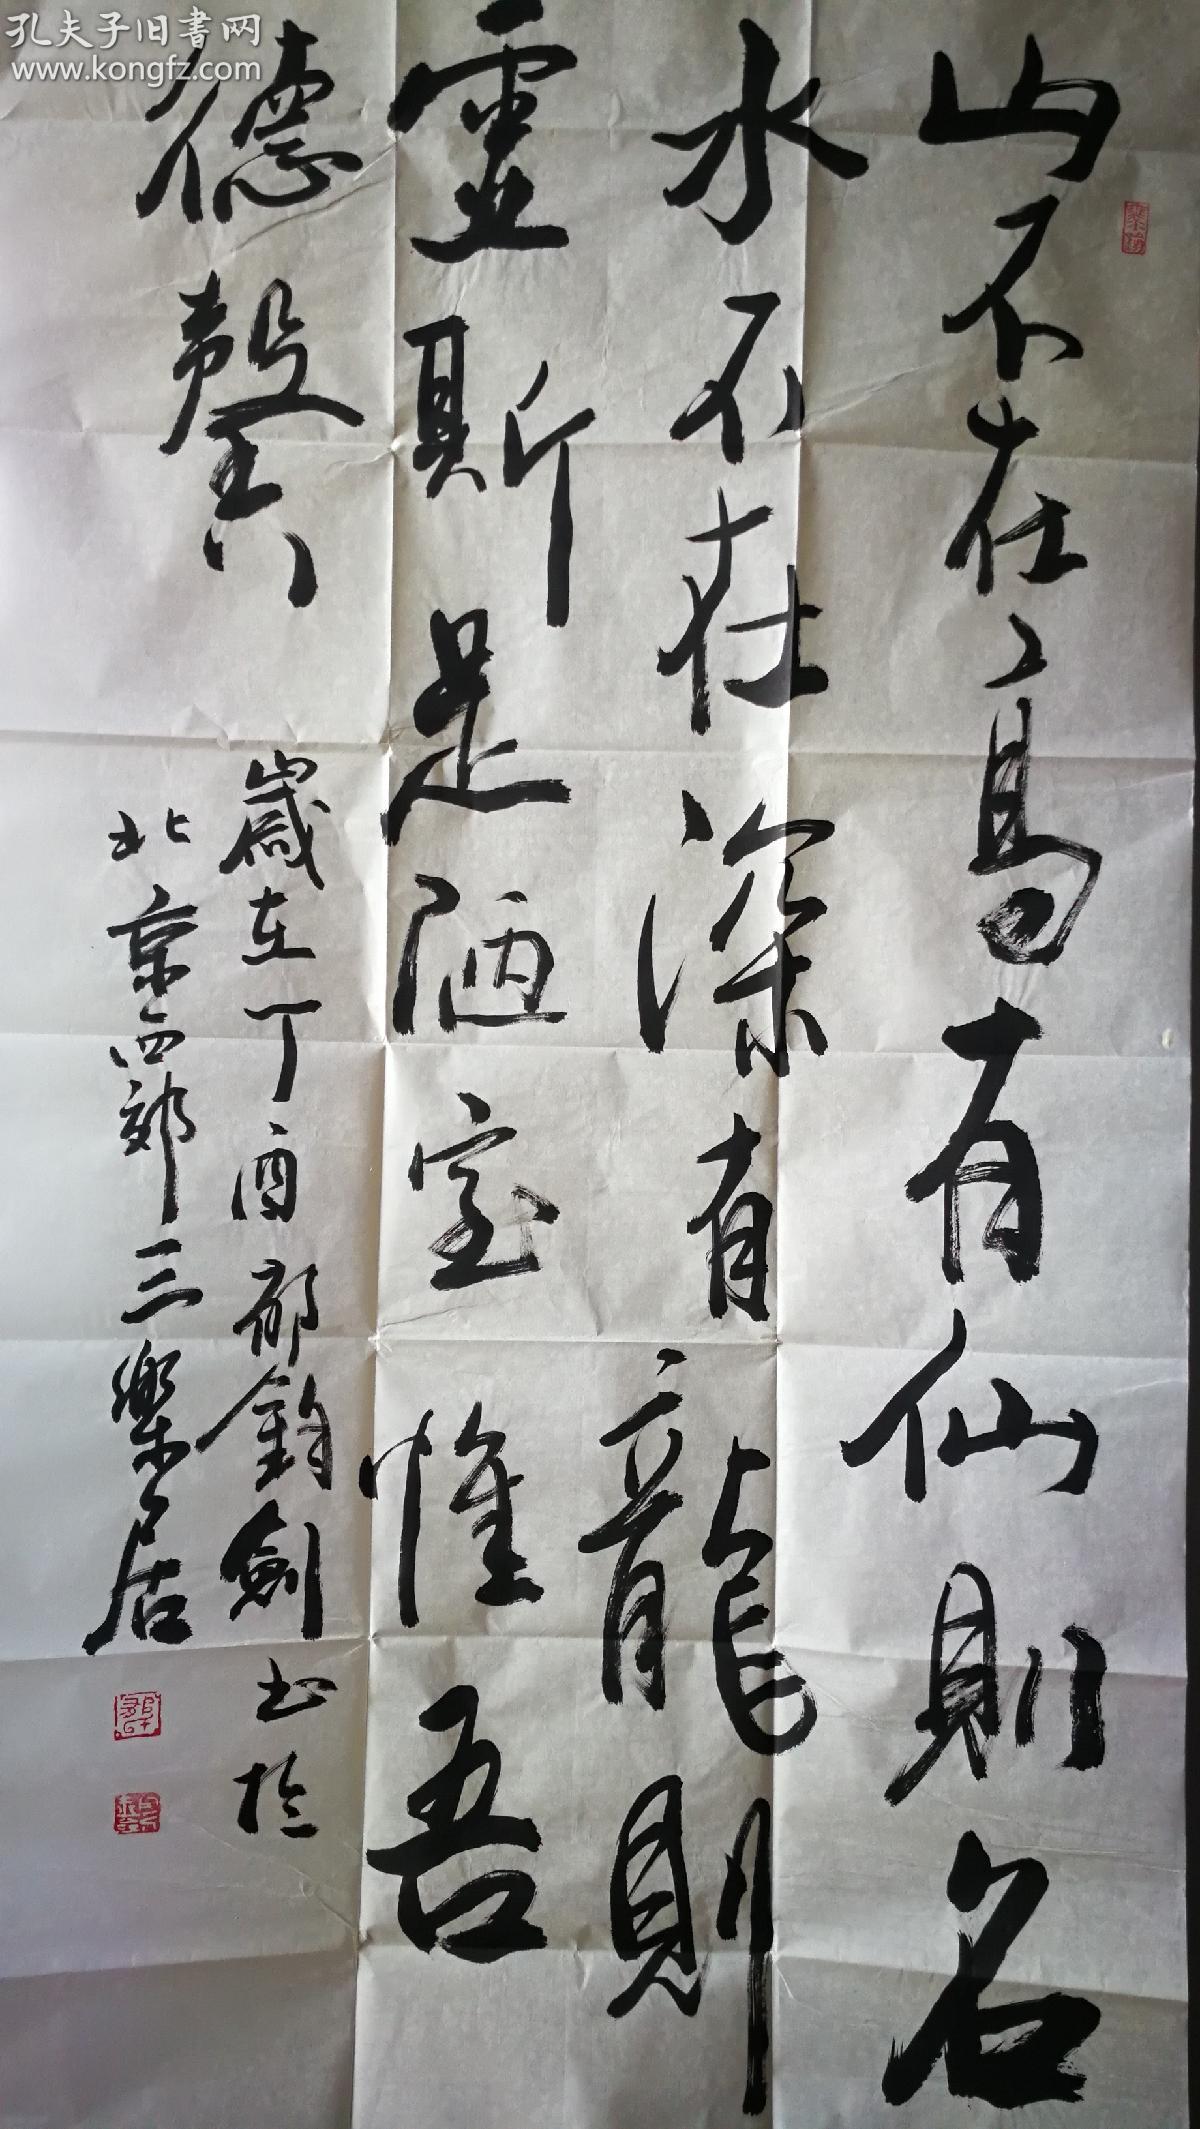 孔夫子旧書网
www.kongfz.com
山不在高有仙則名
水不在深有龍則
靈斯是陋室惟吾
德馨
歲在丁酉 鈞劍书於
北京西郊三樂居